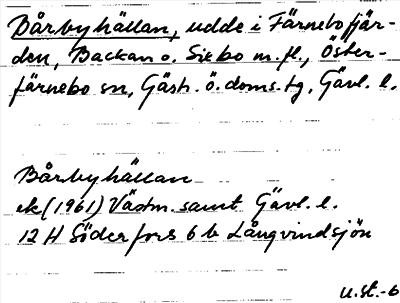 Bårbyhällan, udde i Färnebofjär-
den, Backan o. Siebo m.fl., Öster-
färnebo sn, Gästr. ö. doms. tg, Gävl. l.
Bårbyhällan
ek (1961) Västm. samt Gävl. l.
12 H Söderfors 6 b Långvindsjön
u.st.-b